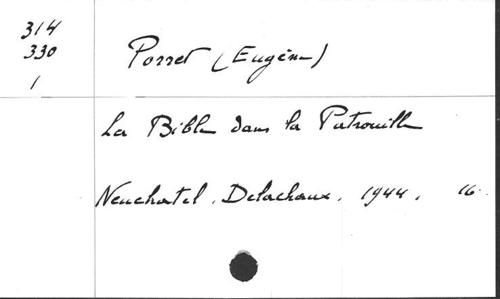 314
330
1
Porret (Eugène)
La Bible dans la Patrouille
Neuchatel. Delachaux. 1944. 16.